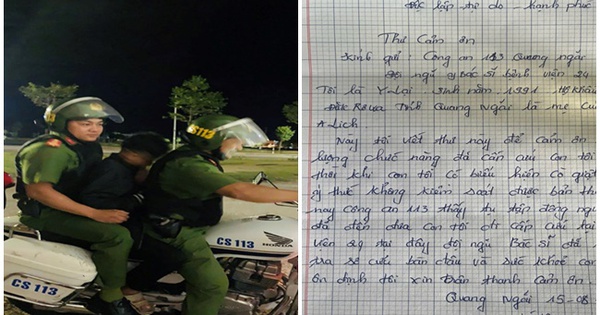 S113
CS 113
HONDA
CS 113
độc lập tự do - hạnh phúc
Thư Cảm ơn
Kính gửi: Công an 113 Quảng ngãi
ngũ y Bác sĩ bệnh viện
Tôi là Y-Lại, sinh năm 1991 Hộ khẩu
Tỉnh Quảng Ngãi là mẹ
A-Lịch.
Nay tôi viết thư này để cảm ơn
lượng chức năng đã cấp cứu con tôi
thời khi con tôi có biểu hiện
ý thức không kiểm soát được bản
nay công an 113 thấy tụ tập đông
đã đến đưa con tôi đi cấp cứu tại
viện tại đây đội ngũ Bác sĩ đã
sơ cứu ban đầu và sức khoẻ con
ổn định tôi xin chân thành cảm ơn.
Quảng Ngãi 15-08